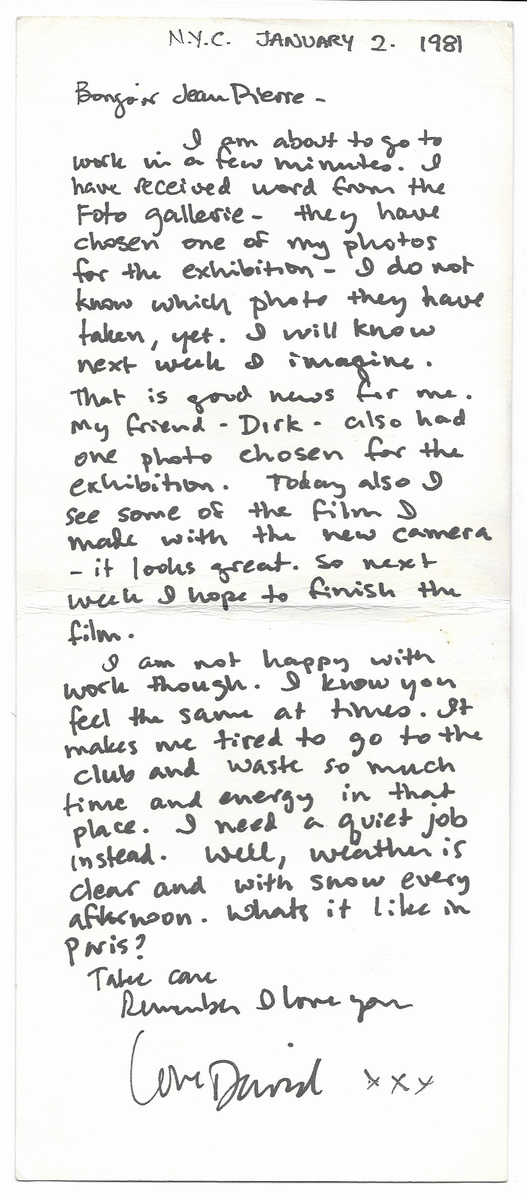 N.Y.C. JANUARY 2. 1981
Bonjour Jean Pierre -
I am about to go to
work in a few minutes. I
have received word from the
Foto gallerie - they have
chosen one of my photos
for the exhibition - I do not
know which photo they have
taken, yet. I will know
next week I imagine.
That is good news for me.
My friend - Dirk - also had
one photo chosen for the
exhibition. Today also I
see some of the film I
made with the new camera
- it looks great. So next
week I hope to finish the
film.
I am not happy with
work though. I know you
feel the same at times. It
makes me tired to go to the
club and waste so much
time and energy in that
place. I need a quiet job
instead. Well, weather is
clear and with snow every
afternoon. Whats it like in
Paris?
Take care
Remember I love you
Love David xxx